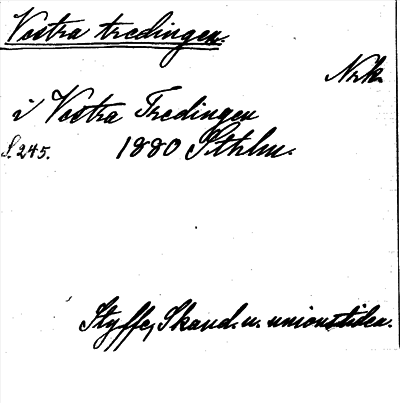 Vestra tredingen.
Nrk.
i Vestra Tredingen
S. 245. 1880 Sthlm.
Styffe, Skand. u. unionstiden.